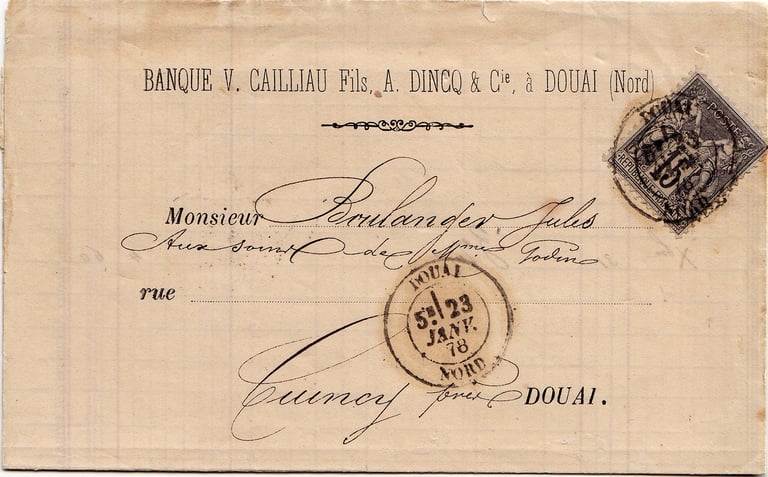 BANQUE V. CAILLIAU Fils, A. DINCQ & Cie, à DOUAI (Nord)
DOUAI
NORD
15
Monsieur Boulanger Jules
Aux soins de Mme Godin
rue
DOUAI
5E 23
JANV.
78
NORD
Cuincy près DOUAI.